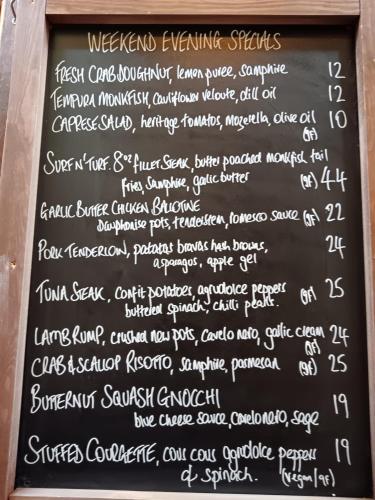 WEEKEND EVENING SPECIALS
FRESH CRAB DOUGHNUT, lemon puree, samphire 12
TEMPURA MONKFISH, cauliflower veloute, dill oil 12
CAPRESE SALAD, heritage tomatos, mozerella, olive oil 10
(gf)
SURF N' TURF. 8oz FILLET STEAK, butter poached monkfish tail
fries, samphire, garlic butter (gf) 44
GARLIC BUTTER CHICKEN BALOTINE
Dauphonise pots, tenderstem, romesco sauce (gf) 22
PORK TENDERLOIN, patatas bravas hash browns, 24
asparagus, apple gel
TUNA STEAK, confit potatoes, agrodolce peppers (gf) 25
buttered spinach, chilli pearls.
LAMB RUMP, crushed new pots, cavelo nero, garlic cream 24
(gf)
CRAB & SCALLOP RISOTTO, samphire, parmesan (gf) 25
BUTTERNUT SQUASH GNOCCHI 19
blue cheese sauce, cavelo nero, sage
STUFFED COURGETTE, cous cous agrodolce peppers 19
& spinach. (vegan/gf)